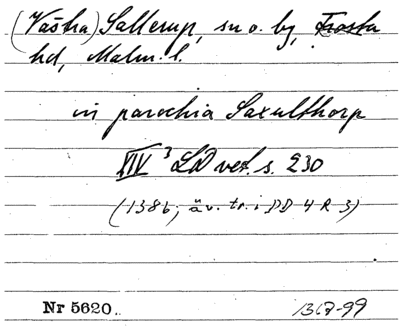 (Västra) Sallerup, sn o. by, Frosta
hd, Malm. l.
in parochia Saxulthorp
XIV 3 LD vet. s. 230
(1386; äv. tr. i DD 4 R 3)
Nr 5620.